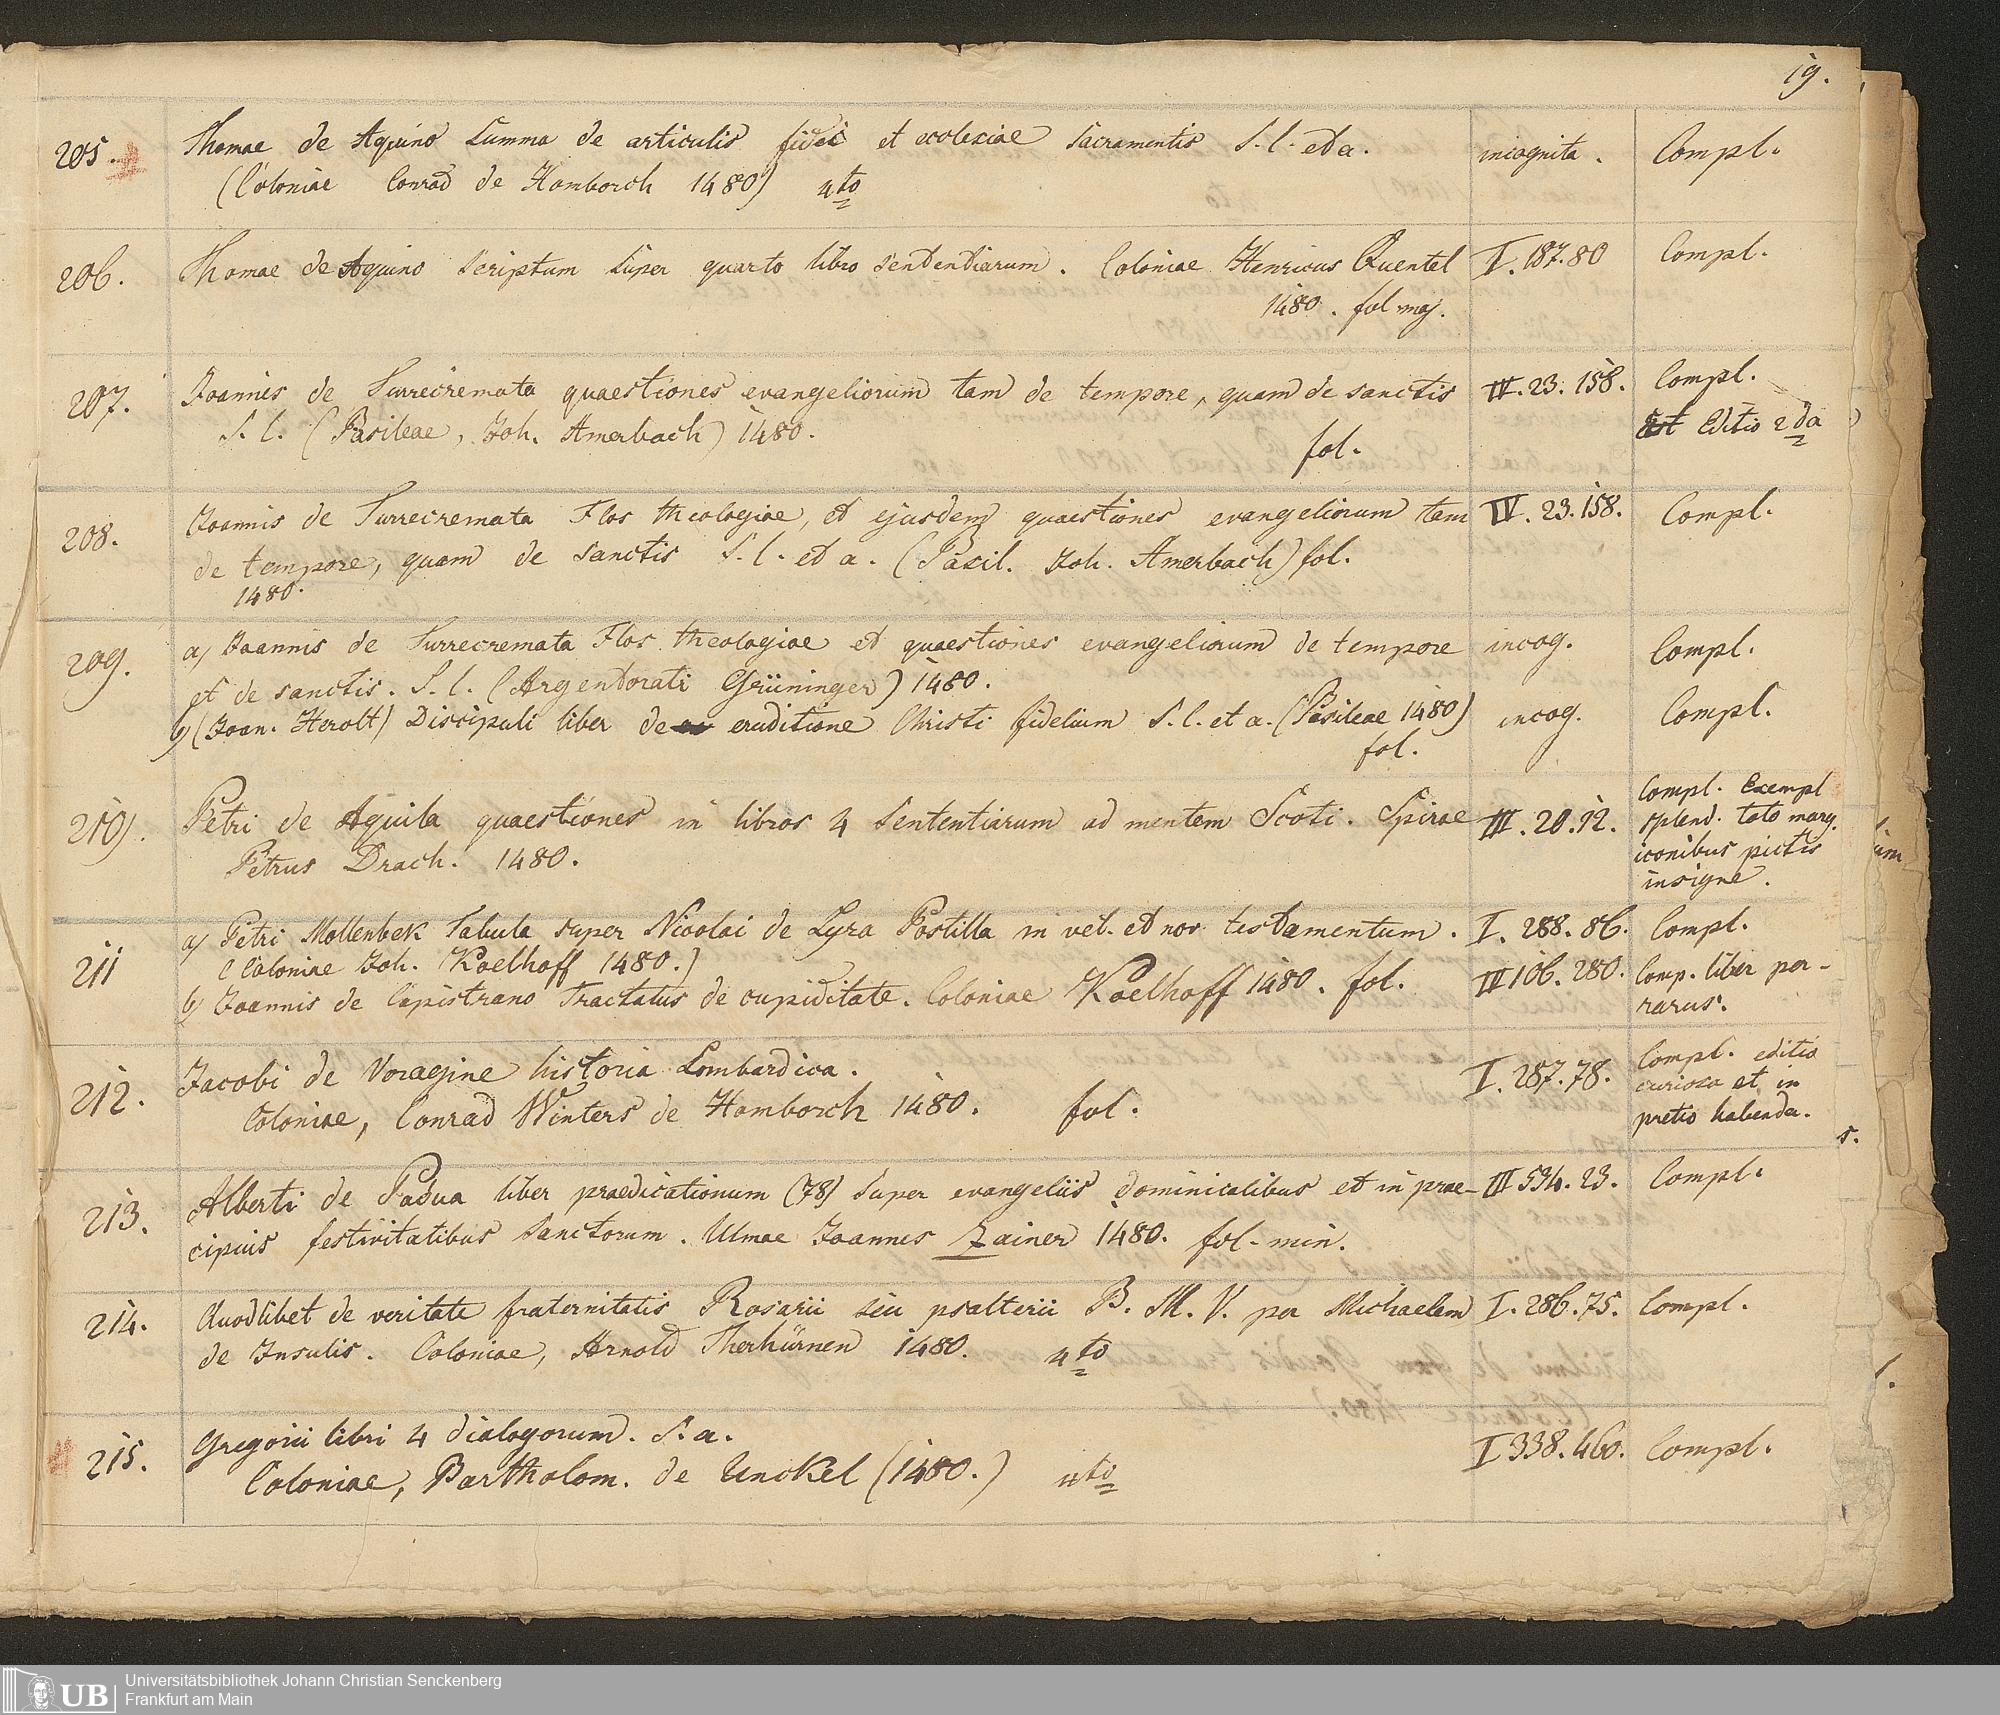 19.
205. Thomae de Aquino Summa de articulis fidei et ecclesiae sacramentis S. l. et a. incognita. Compl.
(Coloniae Conrad de Homborch 1480) 4to
206. Thomae de Aquino Scriptum super quarto libro sententiarum. Coloniae Henricus Quentel I. 187. 80 Compl.
1480. fol maj.
207. Joannis de Turrecremata quaestiones evangeliorum tam de tempore, quam de sanctis IV. 23. 158. Compl.
S. l. (Basileae, Joh. Amerbach) 1480. Est Editio 2da
fol.
208. Joannis de Turrecremata Flos theologiae, et ejusdem quaestiones evangeliorum tam IV. 23. 158. Compl.
de tempore, quam de sanctis S. l. et a. (Basil. Joh. Amerbach) fol.
1480.
209. a) Joannis de Turrecremata Flos theologiae et quaestiones evangeliorum de tempore incog. Compl.
et de sanctis. S. l. (Argentorati Grüninger) 1480.
b) (Joan. Herolt) Discipuli liber de eruditione Christi fidelium S. l. et a. (Basileae 1480) incog. Compl.
fol.
210. Petri de Aquila quaestiones in libros 4 Sententiarum ad mentem Scoti. Spirae III. 20. 12. Compl. Exempl
Petrus Drach. 1480. splend. toto marg.
iconibus pictis
insigne.
211 a) Petri Mollenbek Tabula super Nicolai de Lyra Postilla in vet. et nov. testamentum. I. 288. 86. Compl.
(Coloniae Joh. Koelhoff 1480.)
b) Joannis de Capistrano Tractatus de cupiditate. Coloniae Koelhoff 1480. fol. III 106. 280. Comp. liber per-
rarus.
212. Jacobi de Voragine historia Lombardica. I. 287. 78. Compl. editio
Coloniae, Conrad Winters de Homborch 1480. fol. curiosa et in
pretio habenda.
213. Alberti de Padua liber praedicationum (78) super evangeliis dominicalibus et in prae- III 534. 23. Compl.
cipuis festivitatibus Sanctorum. Ulmae Joannes Zainer 1480. fol. min.
214. Quodlibet de veritate fraternitatis Rosarii seu psalterii B. M. V. per Michaelem I. 286. 75. Compl.
de Insulis. Coloniae, Arnold Therhürnen 1480. 4to
215. Gregorii libri 4 dialogorum. S. a. I 338. 460. Compl.
Coloniae, Bartholom. de Unckel (1480.) 4to
UB Universitätsbibliothek Johann Christian Senckenberg
Frankfurt am Main